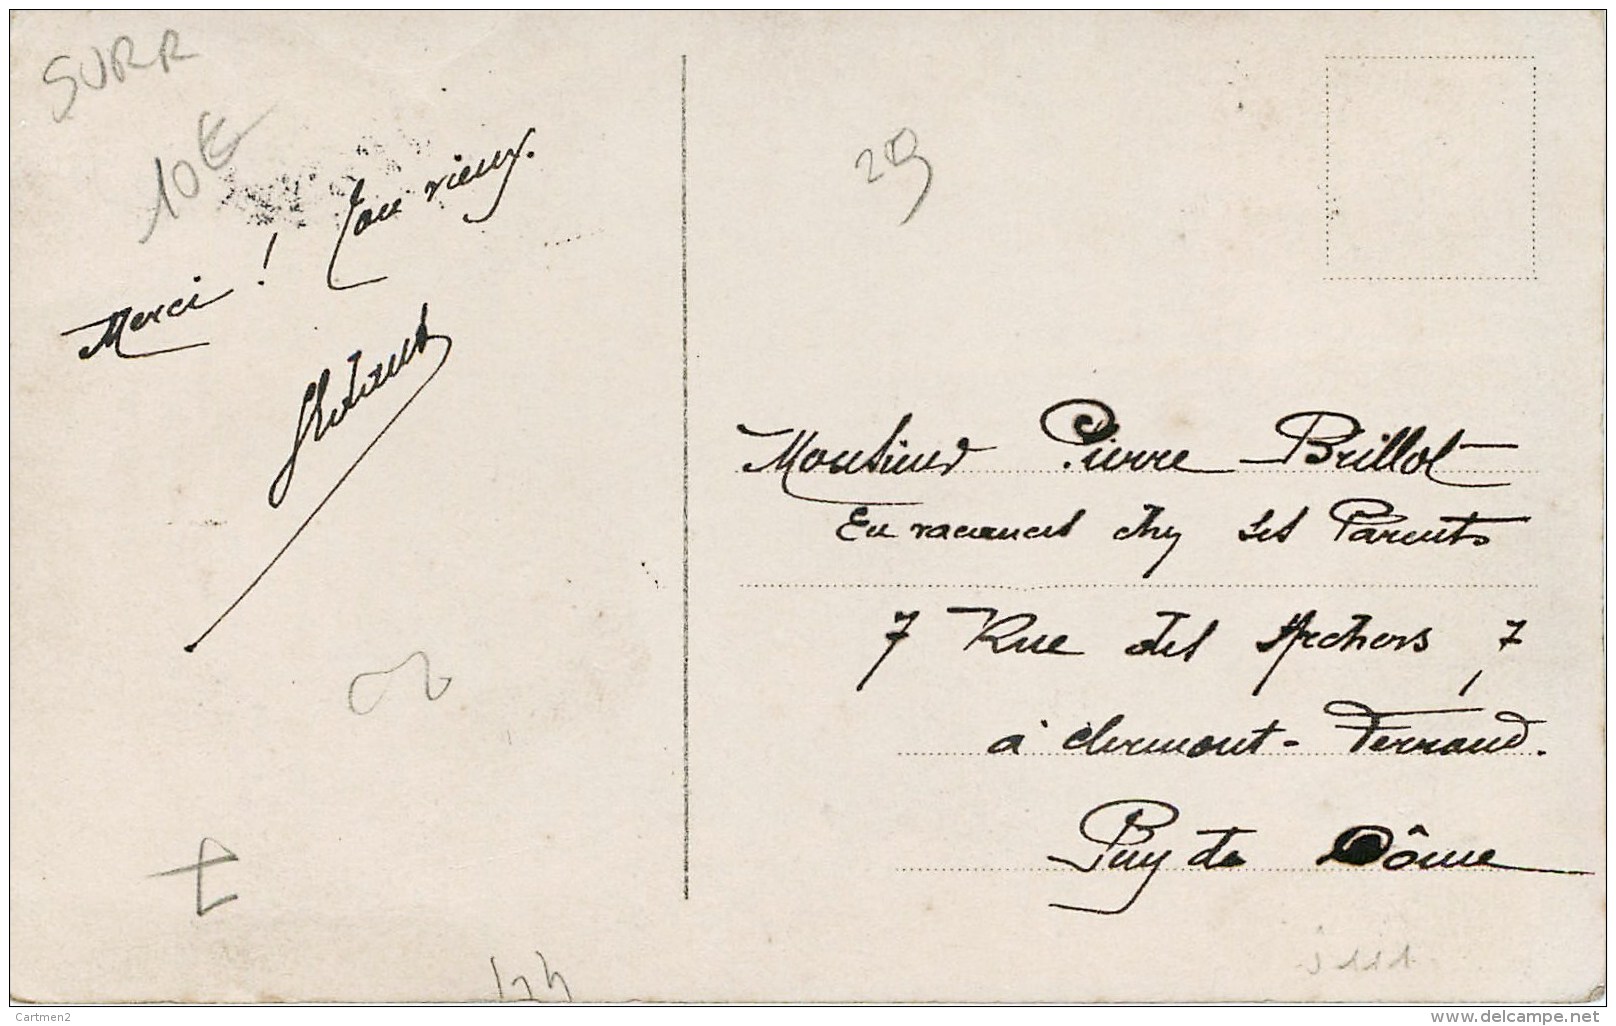 SURR
10€
Merci ! Ton vieux.
29
Monsieur Pierre Brillot
En vacances chez ses Parents
7 Rue des Archers, 7
à Clermont-Ferrand.
Puy de Dôme
Cartmen2
www.delcampe.net